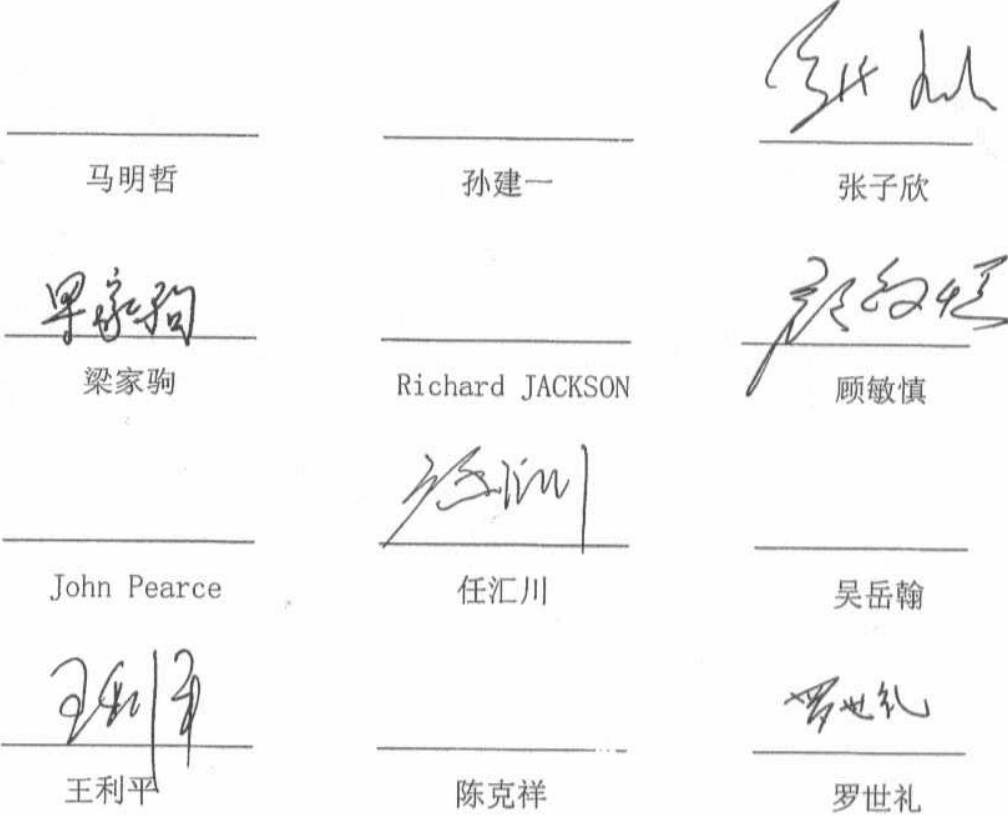 马明哲 孙建一 张子欣
梁家驹
梁家驹 Richard JACKSON 顾敏慎
任汇川
John Pearce 任汇川 吴岳翰
王利平 罗世礼
王利平 陈克祥 罗世礼